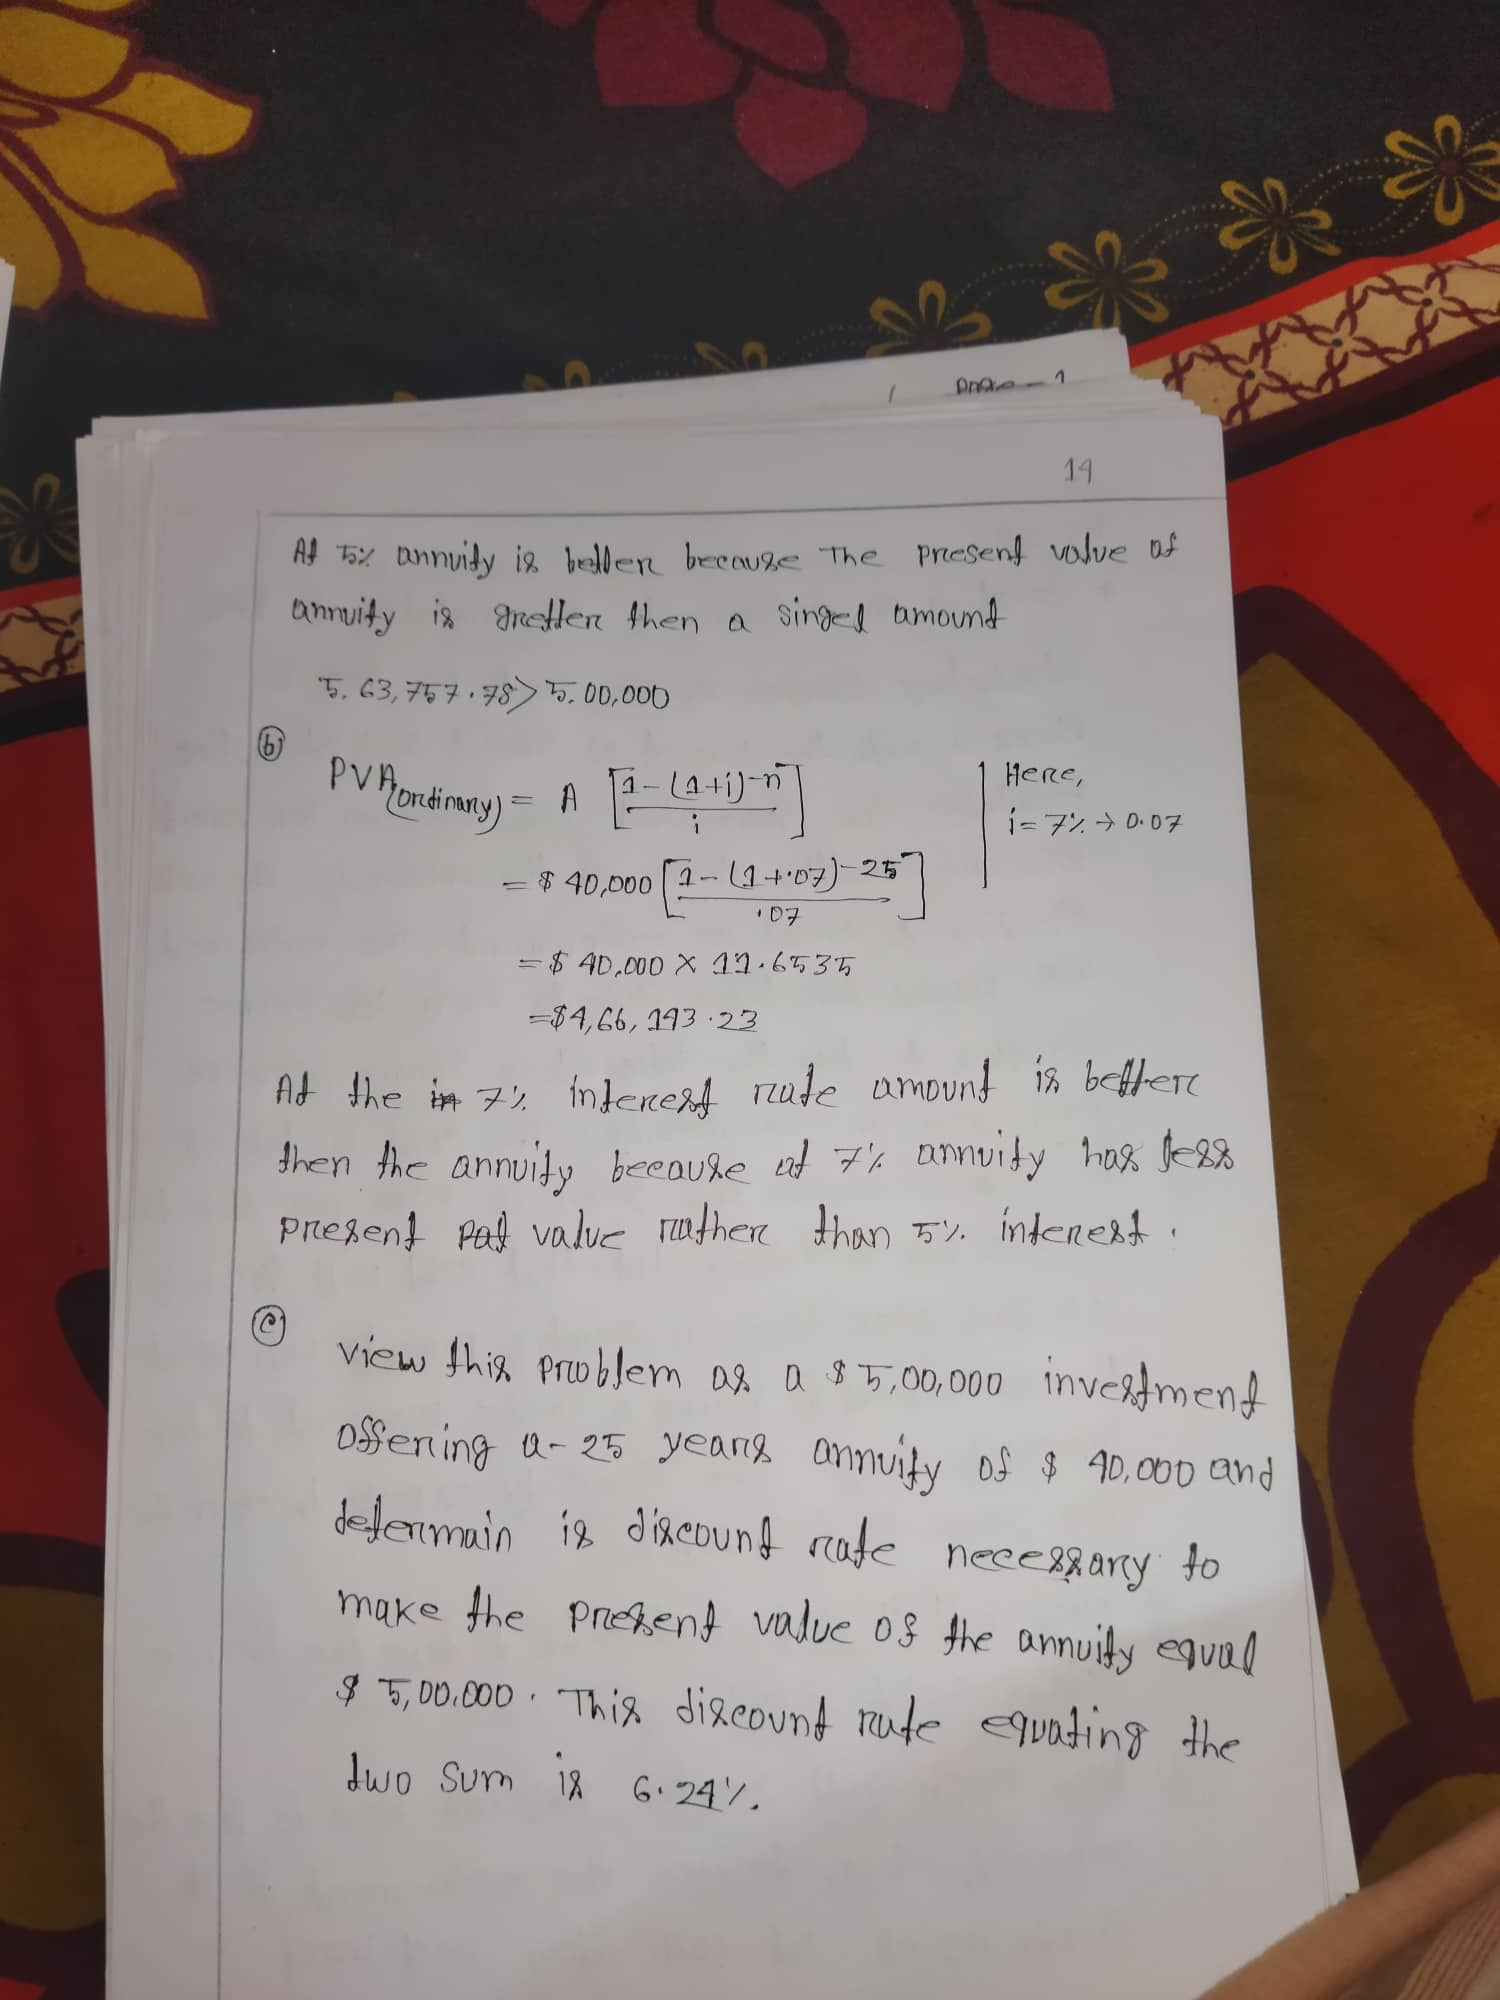 14
At 5% annuity is better because The present value of
annuity is gretter then a singel amount
5,63,757.78 > 5,00,000
(b)
PVA(ordinary) = A [1-(1+i)-n / i]
Here,
i = 7% → 0.07
= $ 40,000 [1-(1+.07)-25 / .07]
= $ 40,000 × 11.6535
= $4,66,143.23
At the in 7% interest rate amount is better
then the annuity because at 7% annuity has less
present pat value rather than 5% interest.
(c)
view this problem as a $ 5,00,000 investment
offering a-25 years annuity of $ 40,000 and
determain is discount rate necessary to
make the present value of the annuity equal
$ 5,00,000. This discount rate equating the
two sum is 6.24%.